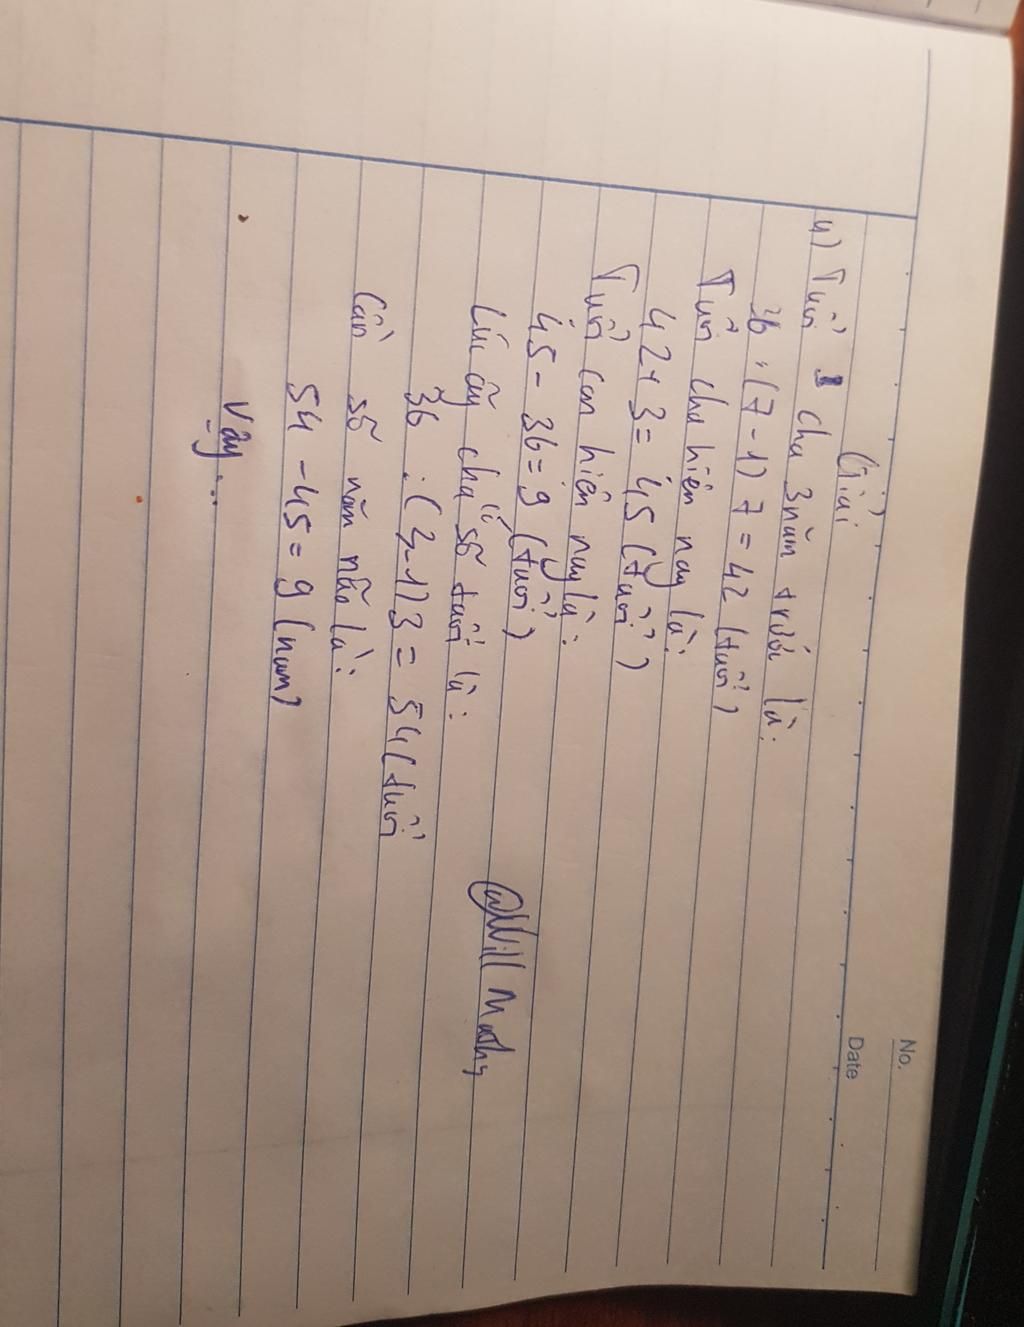 No.
Date
Giải
4) Tuổi cha 3 năm trước là:
36 : (7-1) 7 = 42 (tuổi)
Tuổi cha hiện nay là:
42+3= 45 (tuổi)
Tuổi con hiện nay là:
45 - 36 = 9 (tuổi)
Lúc ấy cha số tuổi là:
36 : (3-1) 3 = 54 (tuổi
Cần số năm nữa là:
54 - 45 = 9 (năm)
Vậy...
@Will Mathy